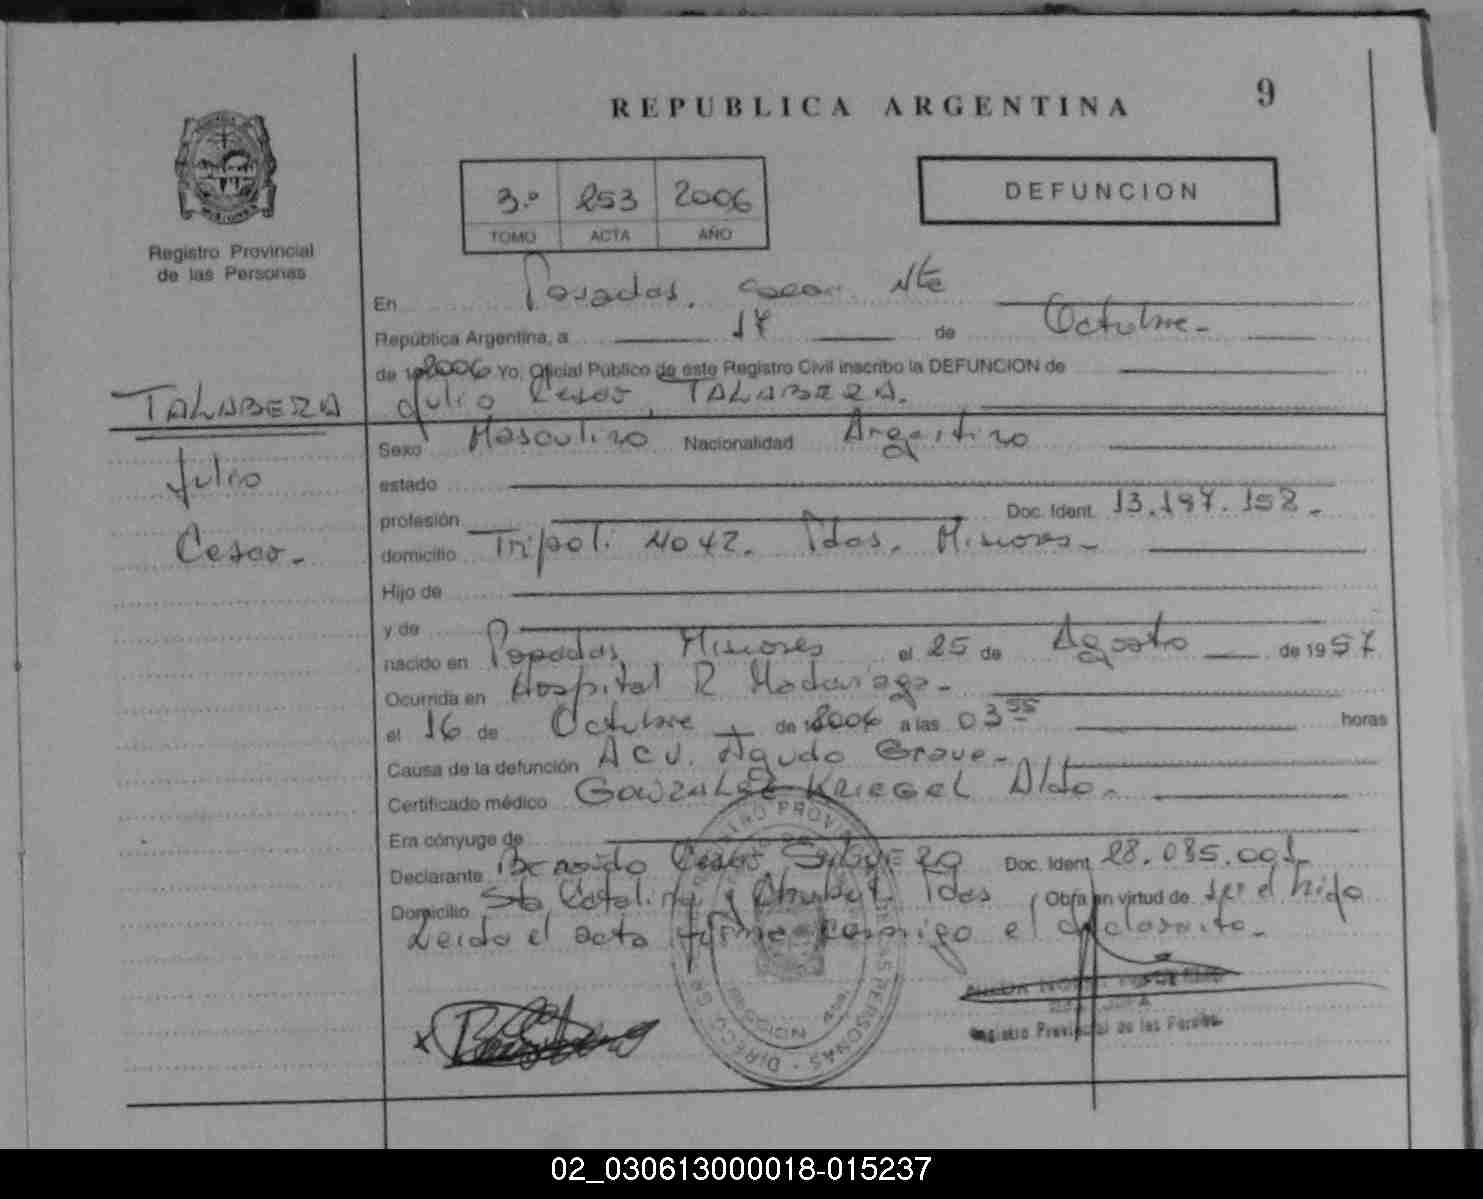 REPUBLICA ARGENTINA
9
3.º 253 2006
TOMO ACTA AÑO
DEFUNCION
Registro Provincial
de las Personas
En Posadas, Nte
República Argentina, a 17 de Octubre-
de 2006 Yo, Oficial Público de este Registro Civil inscribo la DEFUNCION de
TALABERA
Julio Cesar, TALABERA.
Julio
Cesar-
Sexo Masculino Nacionalidad Argentino
estado
profesión Doc. Ident. 13.197.158.-
domicilio Tripoli No 42. Pdas. Misiones-
Hijo de
y de
nacido en Posadas Misiones el 25 de Agosto de 1957
Ocurrida en Hospital R Madariaga-
el 16 de Octubre de 2006 a las 03 55 horas
Causa de la defunción ACV. Agudo Grave-
Certificado médico GONZALEZ KRIEGEL Aldo-
Era cónyuge de
Declarante Cesar Doc. Ident. 28.085.001
Domicilio Sta Catalina y Chubut Pdas Obra en virtud de ser el hijo
Leido el acta firma conmigo el declarante-
Registro Provincial de las Personas
02_030613000018-015237